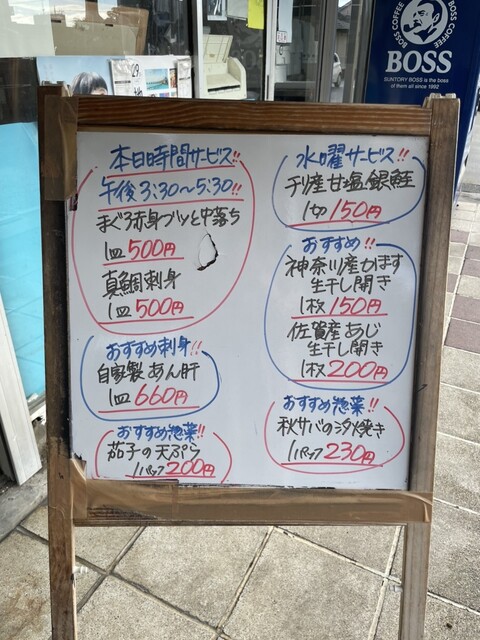 BOSS COFFEE
BOSS COFFEE
BOSS
SUNTORY BOSS is the boss
of them all since 1992
29
本日時間サービス!!
午後3:30～5:30!!
まぐろ赤身ブツと中落ち
1皿500円
真鯛刺身
1皿500円
おすすめ刺身!!
自家製あん肝
1皿660円
おすすめ惣菜!!
茄子の天ぷら
1パック200円
水曜サービス!!
チリ産甘塩銀鮭
1切150円
おすすめ!!
神奈川産かます
生干し開き
1枚150円
佐賀産あじ
生干し開き
1枚200円
おすすめ惣菜!!
秋サバの汐焼き
1パック230円